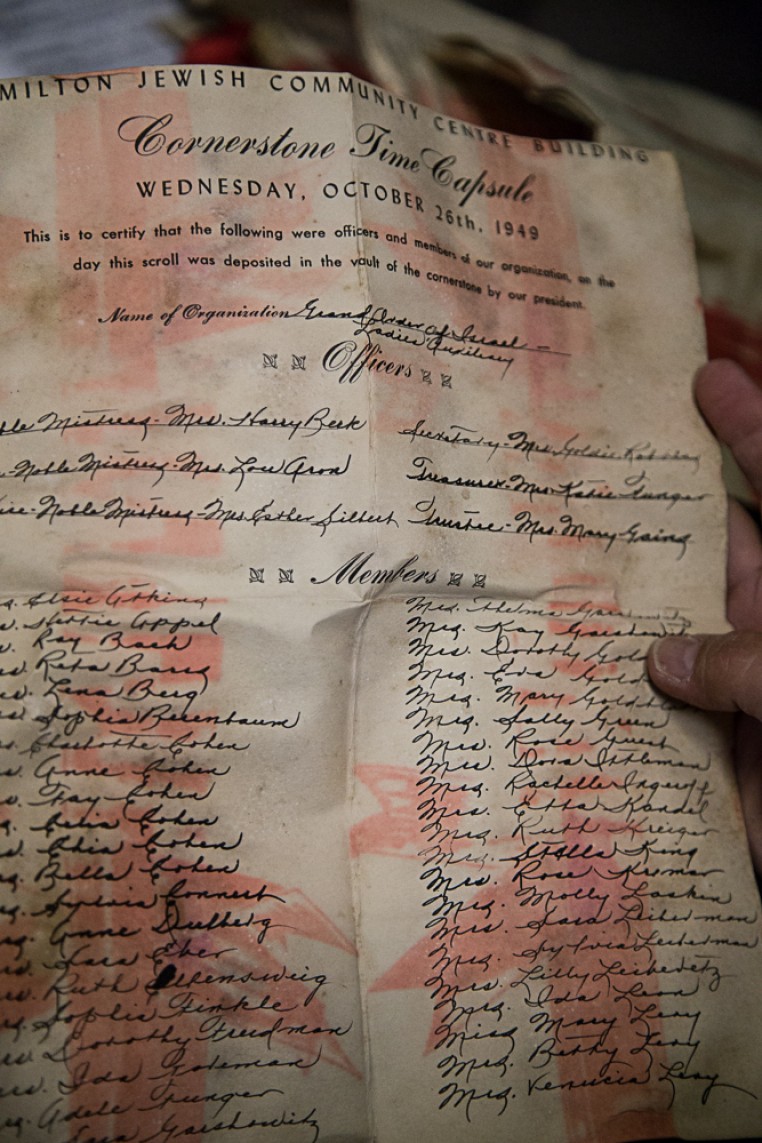 MILTON JEWISH COMMUNITY CENTRE BUILDING
Cornerstone Time Capsule
WEDNESDAY, OCTOBER 26th, 1949
This is to certify that the following were officers and members of our organization, on the
day this scroll was deposited in the vault of the cornerstone by our president.
Name of Organization Grand Order of Israel -
Ladies Auxiliary
Officers
ble Mistress - Mrs. Harry Berk
Noble Mistress - Mrs. Lou Aron
ice-Noble Mistress - Mrs. Esther Silbert
Secretary - Mrs. Goldie
Treasurer - Mrs. Katie Funger
Trustee - Mrs. Mary Going
Members
Elsie Atkins
Appel
Ray Bach
Reta
Lena Berg
Sophia Berenbaum
Charlotte Cohen
Anne Cohen
Fay Cohen
Celia Cohen
Cohen
Bella Cohen
Sylvia Connert
Anne Dulberg
Sara Eber
Ruth
Sophie Finkle
Dorothy Freedman
Ida Goteman
Adele Funger
Sara Gorshowitz
Mrs. Thelma
Mrs. Kay
Mrs. Dorothy Gold
Mrs. Eva Gold
Mrs. Mary Goldbl
Mrs. Sally Green
Mrs. Rose Guest
Mrs. Dora Ittleman
Mrs. Rachelle
Mrs. Etta Kandel
Mrs. Ruth Krieger
Mrs. Stella King
Mrs. Rose Kremar
Mrs. Molly Laskin
Mrs. Sara Leiberman
Mrs. Sylvia Leiberman
Mrs. Lilly Leibovitz
Mrs. Ida Leon
Miss Mary Levy
Mrs. Betty Levy
Mrs. Venucia Levy